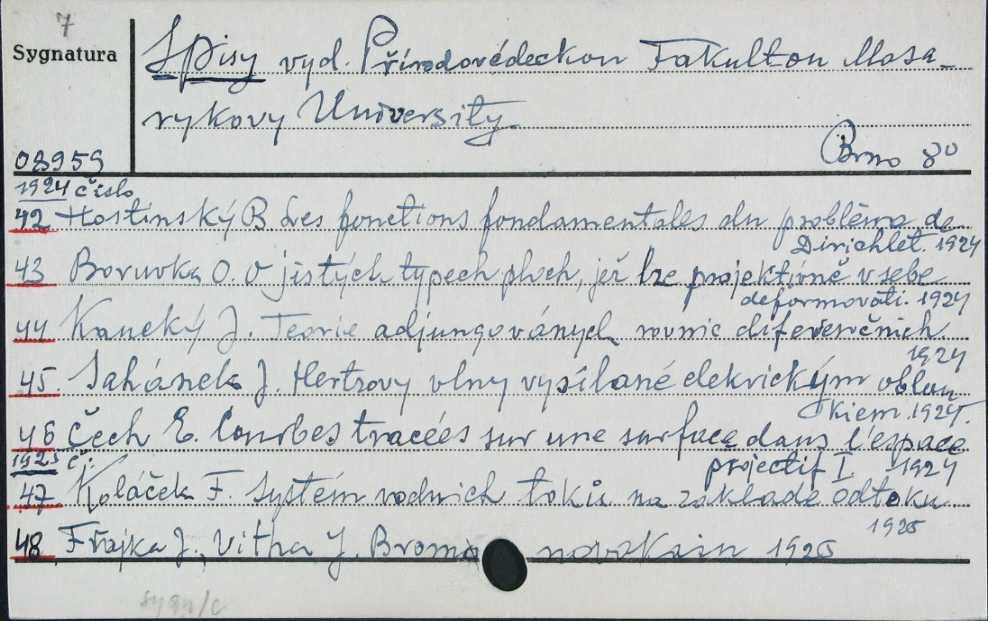 7
Sygnatura
Spisy vyd. Přírodovědeckou Fakultou Masa-
rykovy University
Brno 8°
03959
1924 číslo
42 Hostinský B Les fonctions fondamentales du problème de
Dirichlet. 1924
43 Boruvka O. O jistých typech ploch, jež lze projektivně v sebe
deformovati. 1924
44 Kaucký J. Teorie adjungovaných rovnic diferenčnich.
1924
45. Sahánek J. Hertzovy vlny vysílané elekrickým oblou
kiem. 1924.
46 Čech E. Courbes tracées sur une surface dans l'espace
projectif I. 1924
1925 č.
47 Koláček F. Systém vodnich toků na zakladě odtoku
1925
48. J., Vítha J. Bromo novokain 1925